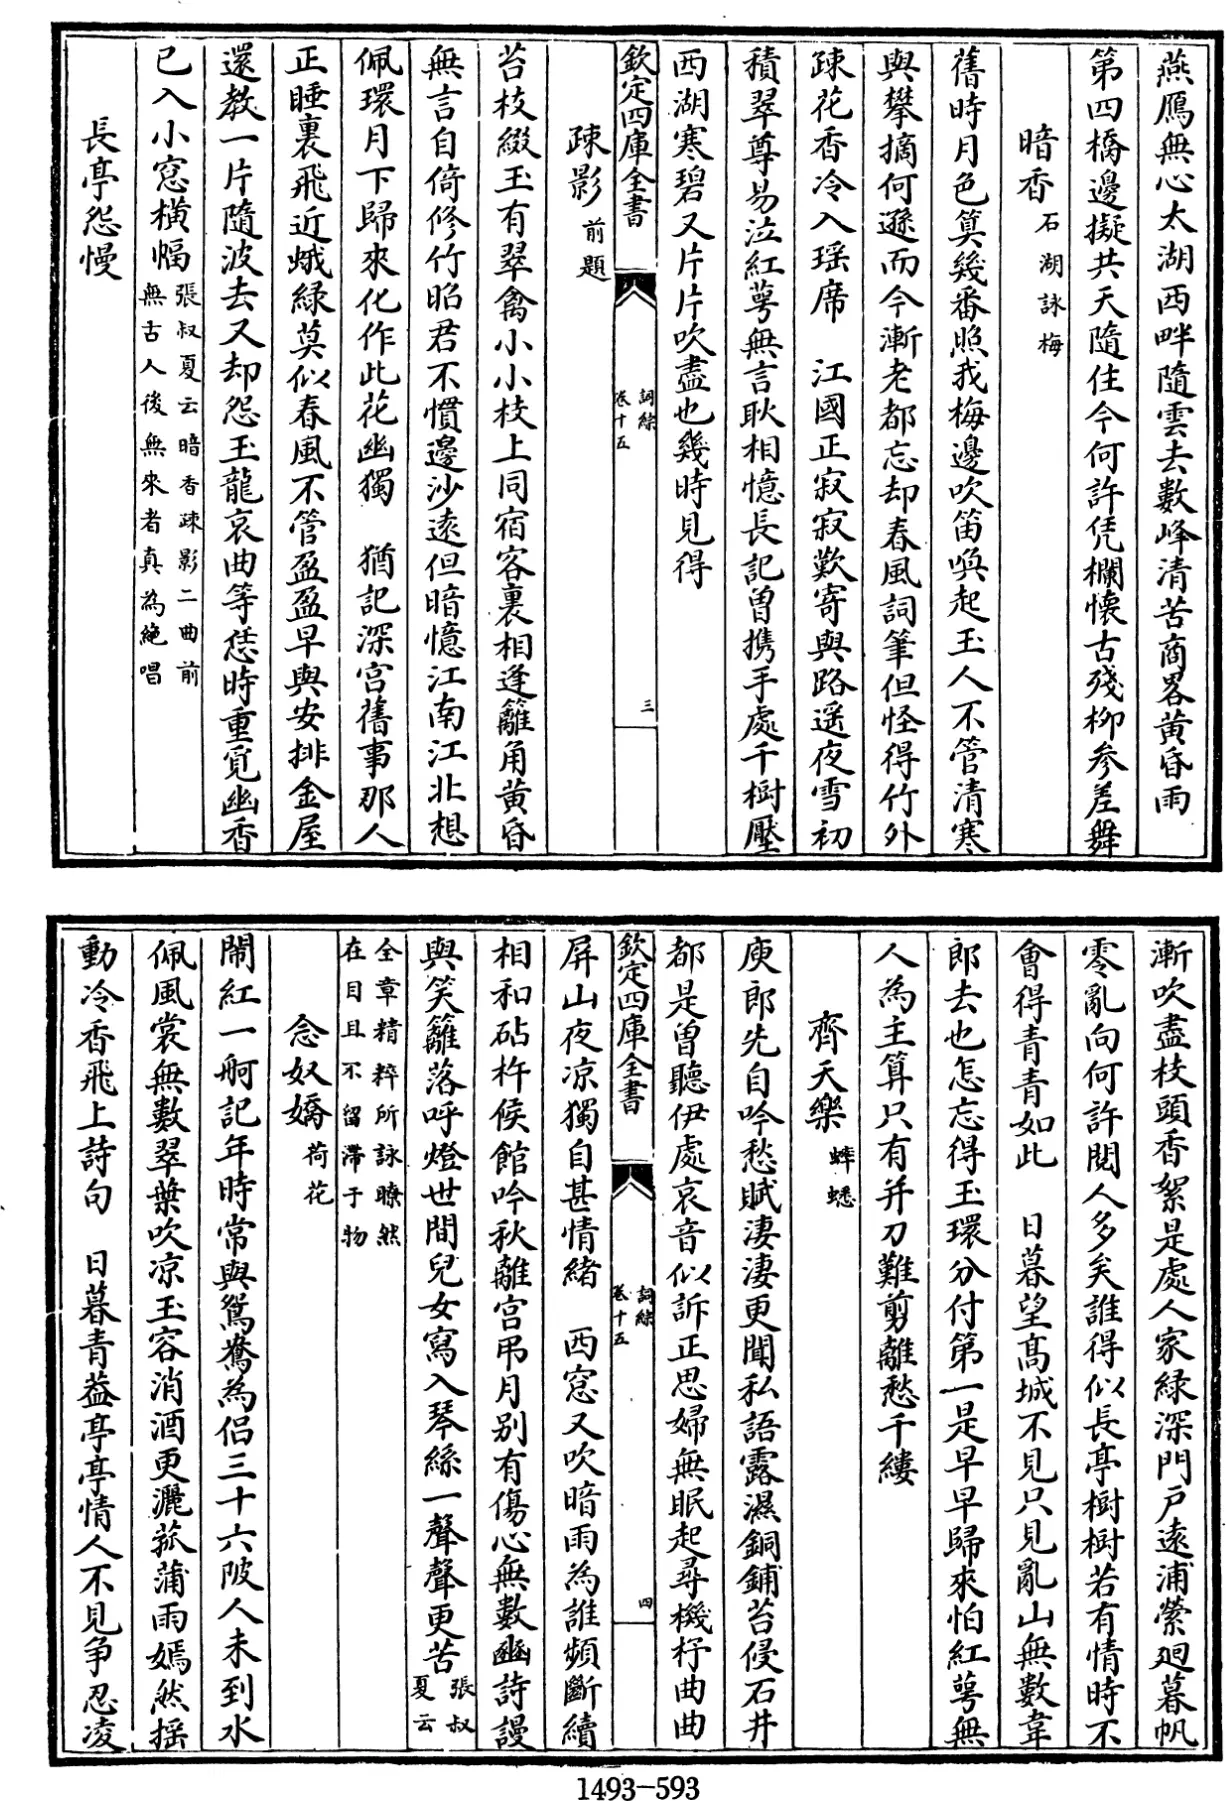 燕鴈無心太湖西畔隨雲去數峰清苦商畧黄昏雨
第四橋邊擬共天隨住今何許凭欄懷古殘栁參差舞
暗香 石湖詠梅
舊時月色算幾番照我梅邊吹笛喚起玉人不管清寒
與攀摘何遜而今漸老都忘却春風詞筆但怪得竹外
疎花香冷入瑶席 江國正寂寂歎寄與路遥夜雪初
積翠尊易泣紅萼無言耿相憶長記曽携手處千樹壓
西湖寒碧又片片吹盡也幾時見得
欽定四庫全書
詞綜
卷十五
三
疎影 前題
苔枝綴玉有翠禽小小枝上同宿客裏相逢籬角黄昏
無言自倚修竹昭君不慣邊沙遠但暗憶江南江北想
佩環月下歸來化作此花幽獨 猶記深宫舊事那人
正睡裏飛近蛾緑莫似春風不管盈盈早與安排金屋
還教一片隨波去又却怨玉龍哀曲等恁時重覓幽香
已入小窓橫幅 張叔夏云暗香疎影二曲前
無古人後無來者真為絶唱
長亭怨慢
漸吹盡枝頭香絮是處人家緑深門户遠浦縈廻暮帆
零亂向何許閲人多矣誰得似長亭樹樹若有情時不
會得青青如此 日暮望髙城不見只見亂山無數韋
郎去也怎忘得玉環分付第一是早早歸來怕紅萼無
人為主算只有并刀難剪離愁千縷
齊天樂 蟀蟋
庾郎先自吟愁賦淒淒更聞私語露濕銅鋪苔侵石井
都是曽聽伊處哀音似訴正思婦無眠起尋機杼曲曲
欽定四庫全書
詞綜
卷十五
四
屏山夜凉獨自甚情緒 西窓又吹暗雨為誰頻斷續
相和砧杵候館吟秋離宫弔月别有傷心無數豳詩謾
與笑籬落呼燈世間兒女寫入琴絲一聲聲更苦 張叔
夏云
全章精粹所詠瞭然
在目且不留滯于物
念奴嬌 荷花
閙紅一舸記年時常與鴛鴦為侣三十六陂人未到水
佩風裳無數翠葉吹凉玉容消酒更灑菰蒲雨嫣然摇
動冷香飛上詩句 日暮青葢亭亭情人不見争忍凌
1493-593